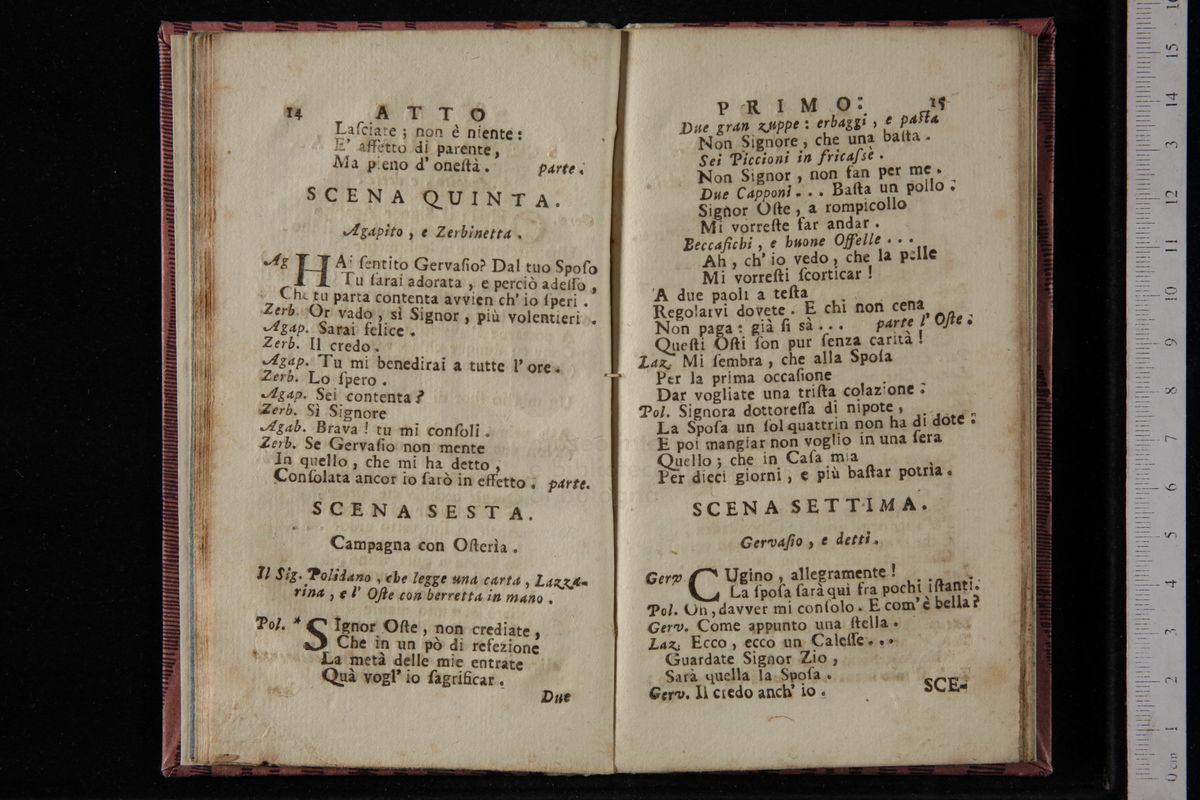 14 ATTO
Laſciate ; non è niente :
E' affetto di parente,
Ma pieno d' oneſtà . parte .
SCENA QUINTA.
Agapito , e Zerbinetta .
Ag HAi ſentito Gervaſio? Dal tuo Spoſo
Tu ſarai adorata , e perciò adeſſo ,
Che tu parta contenta avvien ch' io ſperi .
Zerb. Or vado , sì Signor , più volentieri .
Agap. Sarai felice .
Zerb. Il credo .
Agap. Tu mi benedirai a tutte l' ore .
Zerb. Lo ſpero .
Agap. Sei contenta ?
Zerb. Sì Signore
Agab. Brava ! tu mi conſoli .
Zerb. Se Gervaſio non mente
In quello , che mi ha detto ,
Conſolata ancor io ſarò in effetto . parte.
SCENA SESTA.
Campagna con Oſterìa .
Il Sig. Polidano , che legge una carta , Lazza-
rina , e l' Oſte con berretta in mano .
Pol. * SIgnor Oſte , non crediate ,
Che in un pò di refezione
La metà delle mie entrate
Quà vogl' io ſagrificar .
Due
PRIMO: 15
Due gran zuppe : erbaggi , e paſta
Non Signore , che una baſta .
Sei Piccioni in fricaſsè .
Non Signor , non fan per me .
Due Capponi . . . Baſta un pollo :
Signor Oſte , a rompicollo
Mi vorreſte far andar .
Beccafichi , e buone Offelle . . .
Ah , ch' io vedo , che la pelle
Mi vorreſti ſcorticar !
A due paoli a teſta
Regolarvi dovete . E chi non cena ,
Non paga : già ſi sà . . . parte l' Oſte :
Queſti Oſti ſon pur ſenza carità !
Laz. Mi ſembra , che alla Spoſa
Per la prima occaſione
Dar vogliate una triſta colazione :
Pol. Signora dottoreſſa di nipote ,
La Spoſa un ſol quattrin non ha di dote :
E poi mangiar non voglio in una ſera
Quello ; che in Caſa mia
Per dieci giorni , e più baſtar potrìa .
SCENA SETTIMA.
Gervaſio , e detti .
Gerv CUgino , allegramente !
La ſpoſa ſarà qui fra pochi iſtanti :
Pol. Oh , davver mi conſolo . E com' è bella ?
Gerv. Come appunto una ſtella .
Laz. Ecco , ecco un Caleſſe . . .
Guardate Signor Zio ,
Sarà quella la Spoſa .
Gerv. Il credo anch' io .
SCE-
0 cm 1 2 3 4 5 6 7 8 9 10 11 12 13 14 15